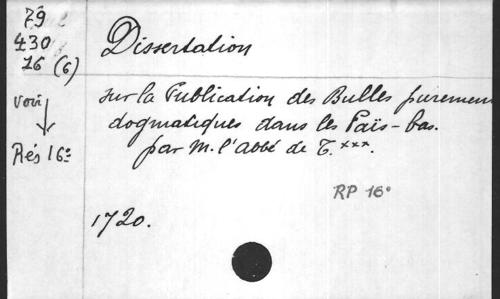 79
430
16 (6)
voir
Rés 16º
Dissertation
sur la Publication des Bulles purement
dogmatiques dans les Païs-bas.
par M. l'abbé de T.***.
RP 16º
1720.